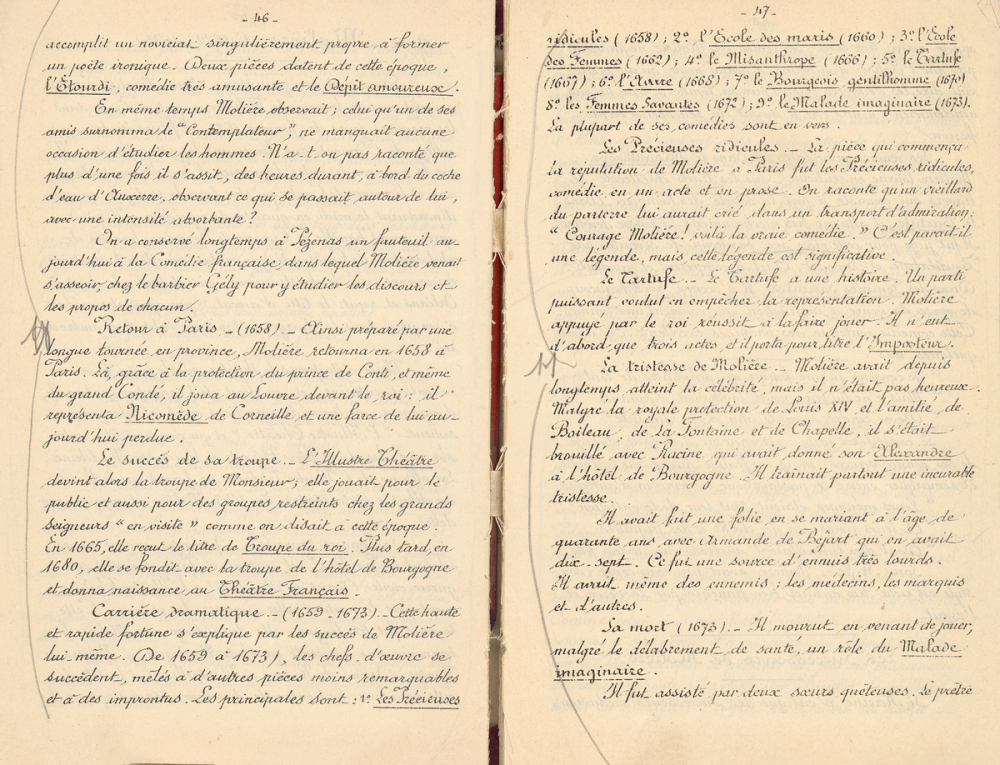 - 46 -
accomplit un noviciat singulièrement propre à former
un poète ironique. Deux pièces datent de cette époque,
l'Étourdi, comédie très amusante et le Dépit amoureux.
En même temps Molière observait ; celui qu'un de ses
amis surnomma le "Contemplateur", ne manquait aucune
occasion d'étudier les hommes. N'a-t-on pas raconté que
plus d'une fois il s'assit, des heures durant, à bord du coche
d'eau d'Auxerre, observant ce qui se passait autour de lui,
avec une intensité absorbante ?
On a conservé longtemps à Pézenas un fauteuil au-
jourd'hui à la Comédie française, dans lequel Molière venait
s'asseoir, chez le barbier Gély pour y étudier les discours et
les propos de chacun.
Retour à Paris - (1658). - Ainsi préparé par une
longue tournée en province, Molière retourna en 1658 à
Paris. Là, grâce à la protection du prince de Conti, et même
du grand Condé, il joua au Louvre devant le roi : il
représenta Nicomède de Corneille et une farce de lui au-
jourd'hui perdue.
Le succès de sa troupe. - L'Illustre Théâtre
devint alors la troupe de Monsieur ; elle jouait pour le
public et aussi pour des groupes restreints chez les grands
seigneurs "en visite" comme on disait à cette époque.
En 1665, elle reçut le titre de Troupe du roi. Plus tard, en
1680, elle se fondit avec la troupe de l'hôtel de Bourgogne
et donna naissance au Théâtre Français.
Carrière dramatique - (1659-1673) - Cette haute
et rapide fortune s'explique par les succès de Molière
lui-même. (De 1659 à 1673), les chefs-d'œuvre se
succèdent, mêlés à d'autres pièces moins remarquables
et à des impromtus. Les principales sont : 1º Les Précieuses
- 47 -
ridicules (1658) ; 2º l'École des maris (1660) ; 3º l'École
des Femmes (1662) ; 4º le Misanthrope (1666) ; 5º le Tartufe
(1667) ; 6º l'Avare (1668) ; 7º le Bourgeois gentilhomme (1670)
8º les Femmes Savantes (1672) ; 9º le Malade imaginaire (1673).
La plupart de ses comédies sont en vers.
Les Précieuses ridicules. - La pièce qui commença
la réputation de Molière à Paris fut les Précieuses ridicules,
comédie en un acte et en prose. On raconte qu'un vieillard
du parterre lui aurait crié, dans un transport d'admiration :
"Courage Molière ! voilà la vraie comédie." C'est paraît-il
une légende, mais cette légende est significative.
Le Tartufe. - Le Tartufe a une histoire. Un parti
puissant voulut en empêcher la représentation. Molière
appuyé par le roi réussit à la faire jouer. Il n'eut
d'abord que trois actes et il porta pour titre l'Imposteur.
La tristesse de Molière. - Molière avait depuis
longtemps atteint la célébrité, mais il n'était pas heureux.
Malgré la royale protection de Louis XIV et l'amitié de
Boileau, de La Fontaine et de Chapelle, il s'était
brouillé avec Racine qui avait donné son Alexandre
à l'hôtel de Bourgogne. Il traînait partout une incurable
tristesse.
Il avait fait une folie en se mariant à l'âge de
quarante ans avec Armande de Bejart qui en avait
dix-sept. Ce fut une source d'ennuis très lourds.
Il avait même des ennemis : les médecins, les marquis
et d'autres.
Sa mort (1673). - Il mourut en venant de jouer,
malgré le délabrement de santé, un rôle du Malade
imaginaire.
Il fut assisté par deux sœurs quêteuses. Le prêtre